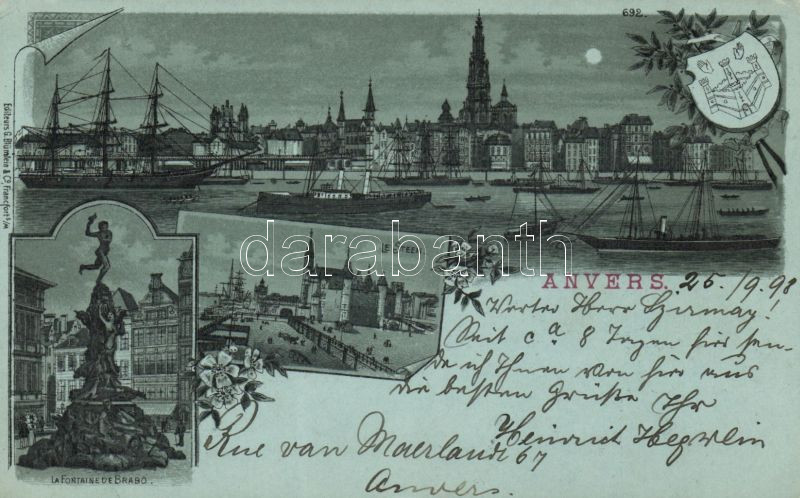 692.
Editeurs G. Blümlein & Co. Francfort s/M
LE STEEN
LA FONTAINE DE BRABO.
ANVERS. 25./9.98
Werter Herr Girmay!
Seit ca 8 Tagen hier sen-
de ich Ihnen von hier aus
die besten Grüße Ihr
Heinrich
Rue van Maerlandt 67
Anvers.
darabanth